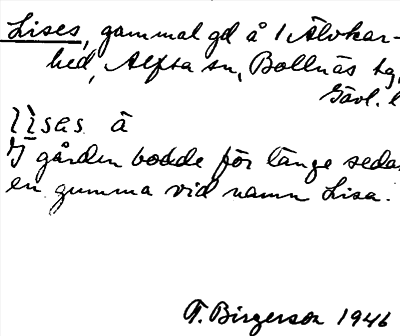 Lises, gammal gd å 1 Älvkar-
hed, Alfta sn, Bollnäs tg,
Gävl. l
lisas å
I gården bodde för länge sedan
en gumma vid namn Lisa.
T. Birgerson 1946